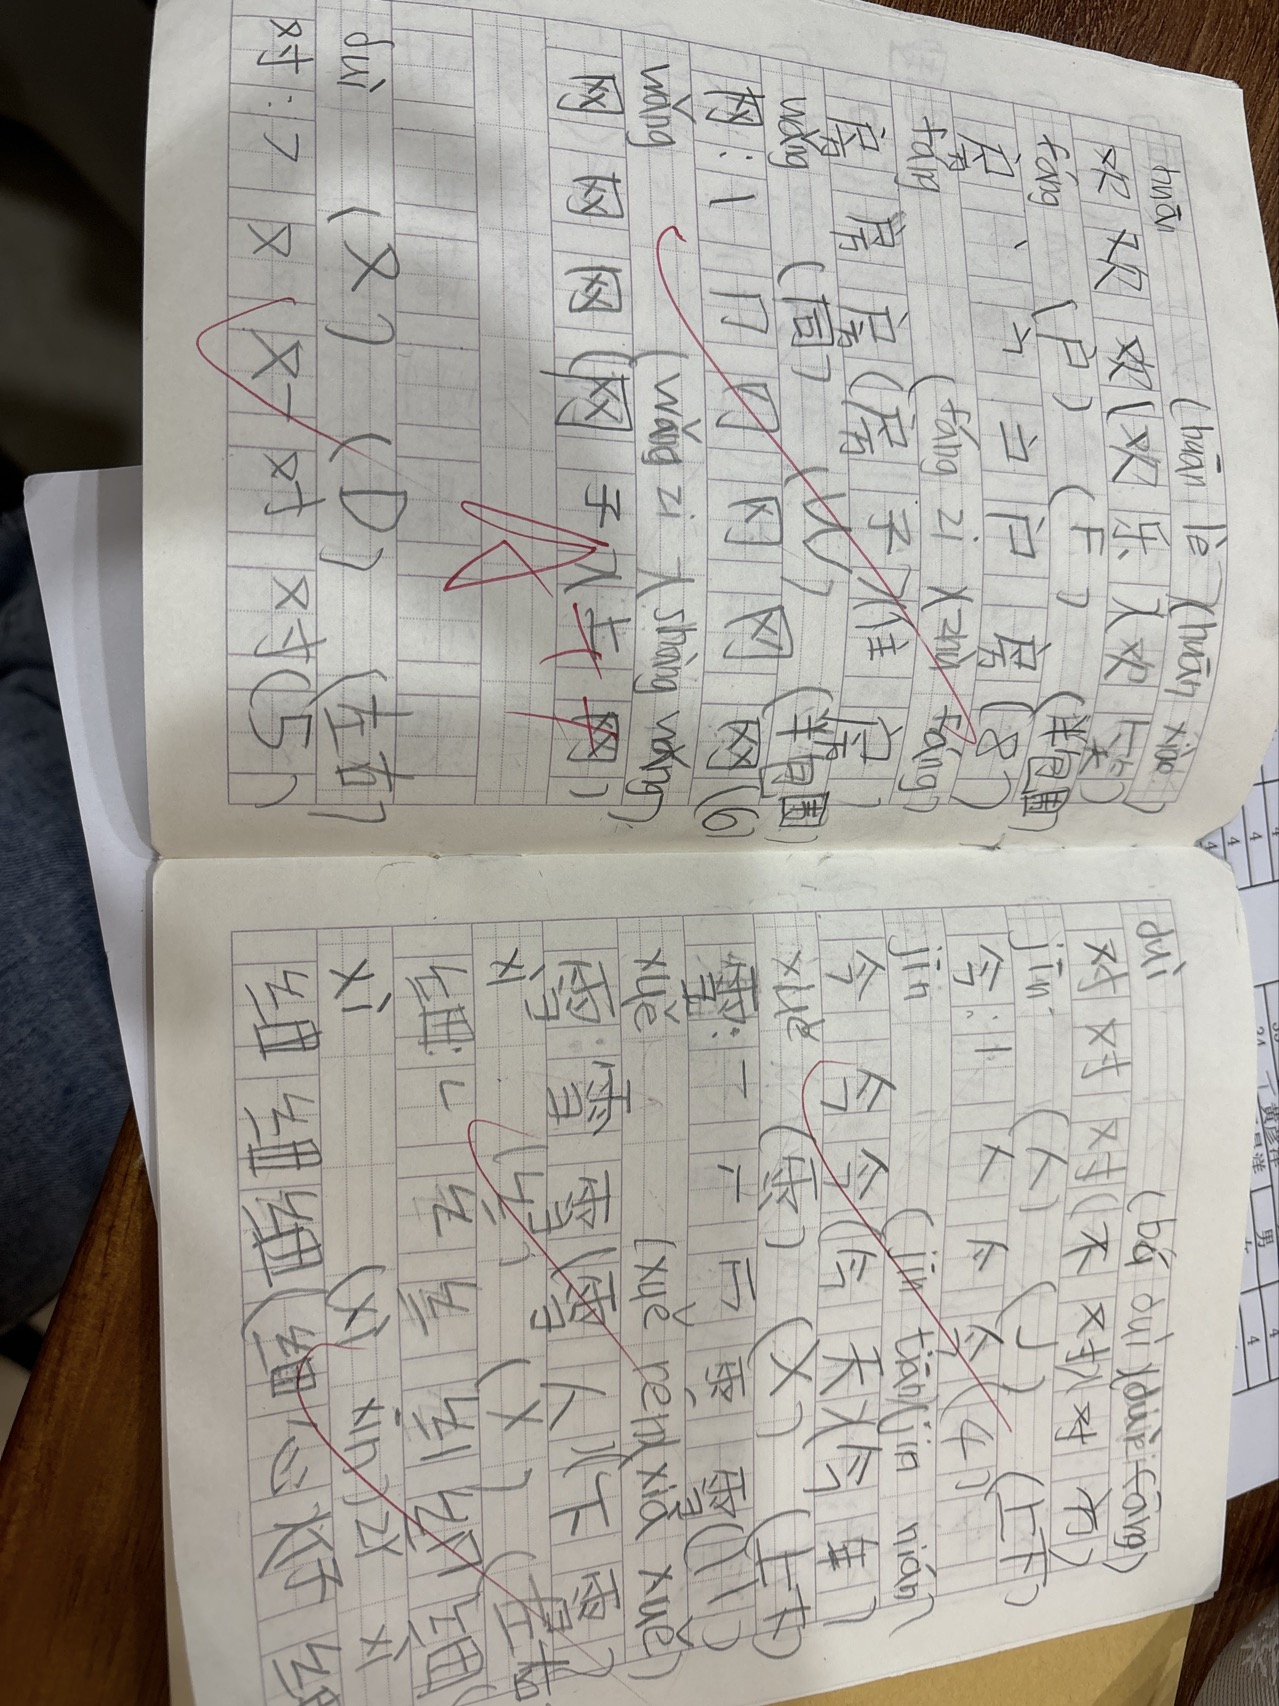 huān (huān lè)(huān xiào)
欢欢欢(欢乐)(欢
fáng (户) (F) (半包围)
房、户房(8)
fáng (fáng zi)(zhù fáng)
房房房(房子)(住房)
wǎng (冂) (W) (半包围)
网:丨冂网(6)
wǎng (wǎng zi)(shàng wǎng)
网网网(网子)(上网)
duì (又) (D) (左右)
对:フ又对对(5)
duì (bú duì)(duì fāng)
对对对(不对)(对方)
jīn (人) (J) (上下)
今:丿人今(4)
jīn (jīn tiān)(jīn nián)
今今今(今天)(今年)
xuě (雨) (X) (上下)
雪:一雨雪(11)
xuě (xuě rén)(xià xuě)
雪雪雪(雪人)(下雪)
xì (纟) (X) (左右
细:纟细
xì (xì xīn)(zǐ xì
细细细(细心)(仔细